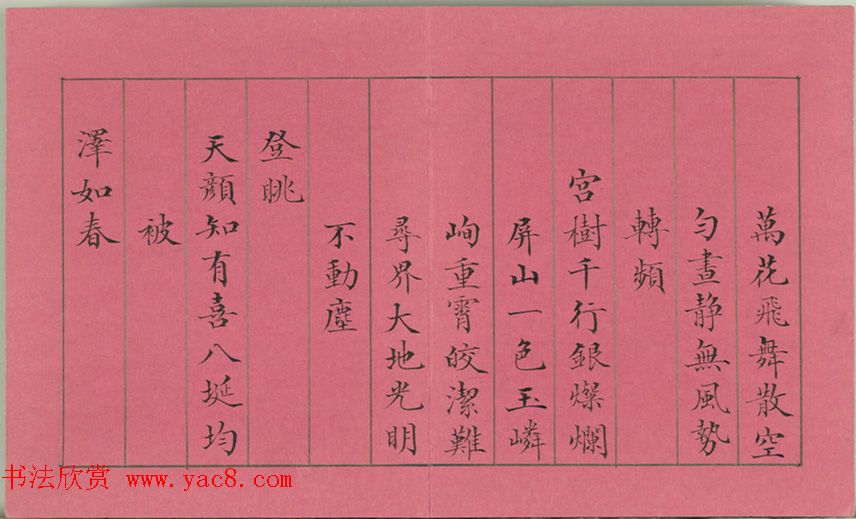 萬花飛舞散空
勻晝静無風勢
轉頻
宮樹千行銀燦爛
屏山一色玉嶙
峋重霄皎潔難
尋界大地光明
不動塵
登眺
天顔知有喜八埏均
被
澤如春
书法欣赏 www.yac8.com